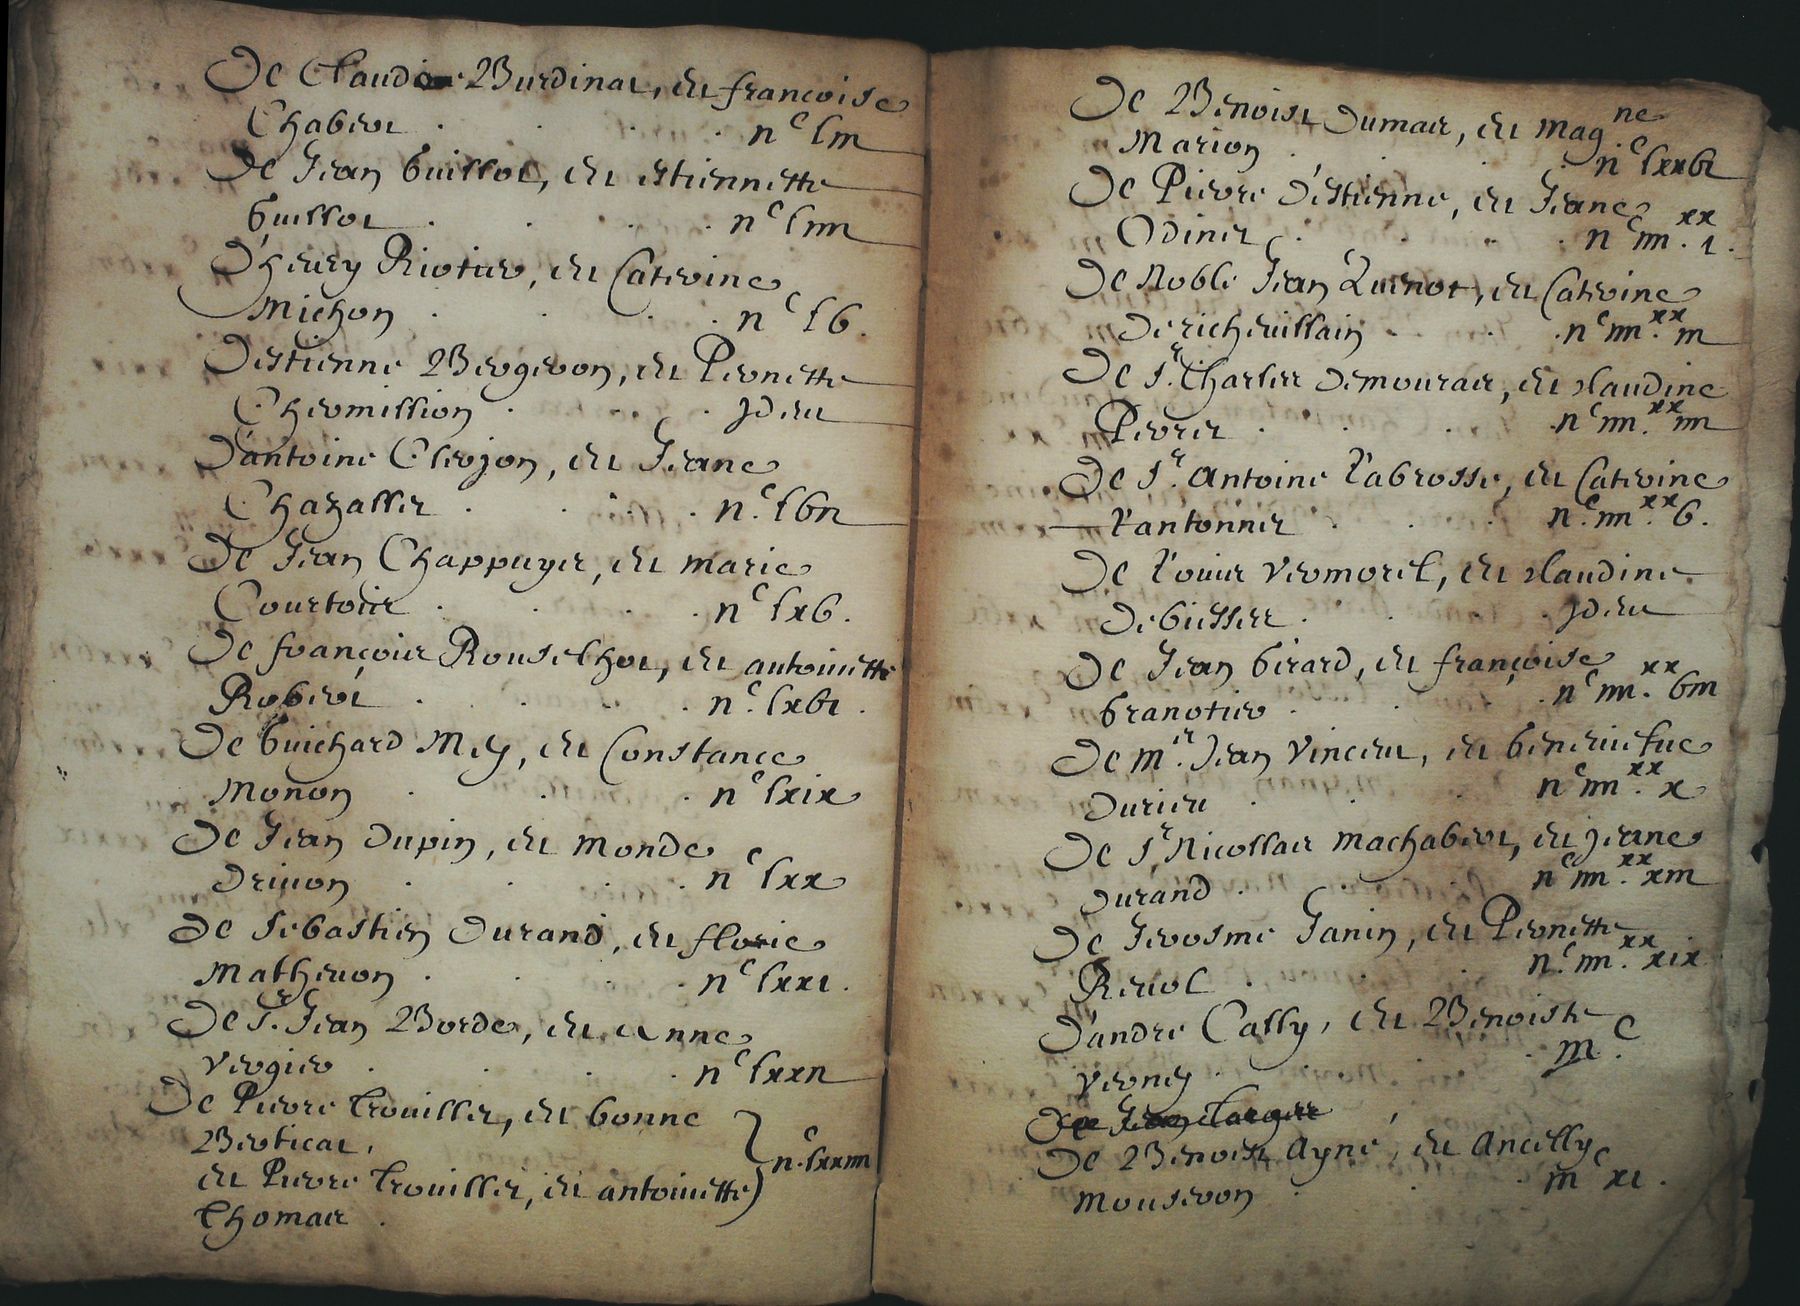 De Claudine Burdinat, et françoise
Chabert . . . . iic liii
De Jean Guillot, et estiennette
Guillot . . . iic liiii
D'henry Riotier, et Caterine
Michon . . . . iic lv.
Destienne Bergeron, et Pernette
Chermillion . . . Idem
D'antoine Clerjon, et Jeane
Chazallet . . . . iic. lvii
De Jean Chappuys, et marie
Courtois . . . . iic lxv.
De françois Rouselhot, et antoinette
Robert . . . . iic. lxvi.
De Guichard Mey, et Constance
Monon . . . iic lxix
De Jean Dupin, et Monde
Drivon . . . . iic lxx
De Sebastien Durand, et florie
Mathevon . . . . iic lxxi.
De Sr. Jean Borde, et Anne
Vergier . . . . iic lxxii
De Pierre Trouillet, et bonne
Berticat,
et Pierre Trouillet, et antoinette
Thomas .
iic. lxxiiii
De Benoist Dumas, et Magne
Marion . . . iic lxxvi
De Pierre D'estienne, et Jeane
Odinet . . . . iic iiiixx. i.
De Noble Jean Quenot, et Caterine
De richevillain . . . iic iiiixx. iii
De Sr. Charles Demouras, et claudine
Perret . . . iic iiiixx. iiii
De Sr. Antoine Labrosse, et Caterine
Lantonnet . . . iic. iiiixx. v.
De Louis Vermorel, et claudine
Debiesses . . . Idem
De Jean Gérard, et françoise
Granotier . . . iic iiiixx. viii
De Mr. Jean Vincent, et
Durieu . . . iic iiiixx. x
De Sr Nicollas Machabert, et jeane
Durand . . . iic iiiixx. xiii
De Jerosme Janin, et Pernette
Revol . . . iic. iiiixx. xix
D'andre Cally, et Benoiste
Verney . . . iiic.
De Benoist Ayné, et Ancelly
Monseron . . . iiic xi.